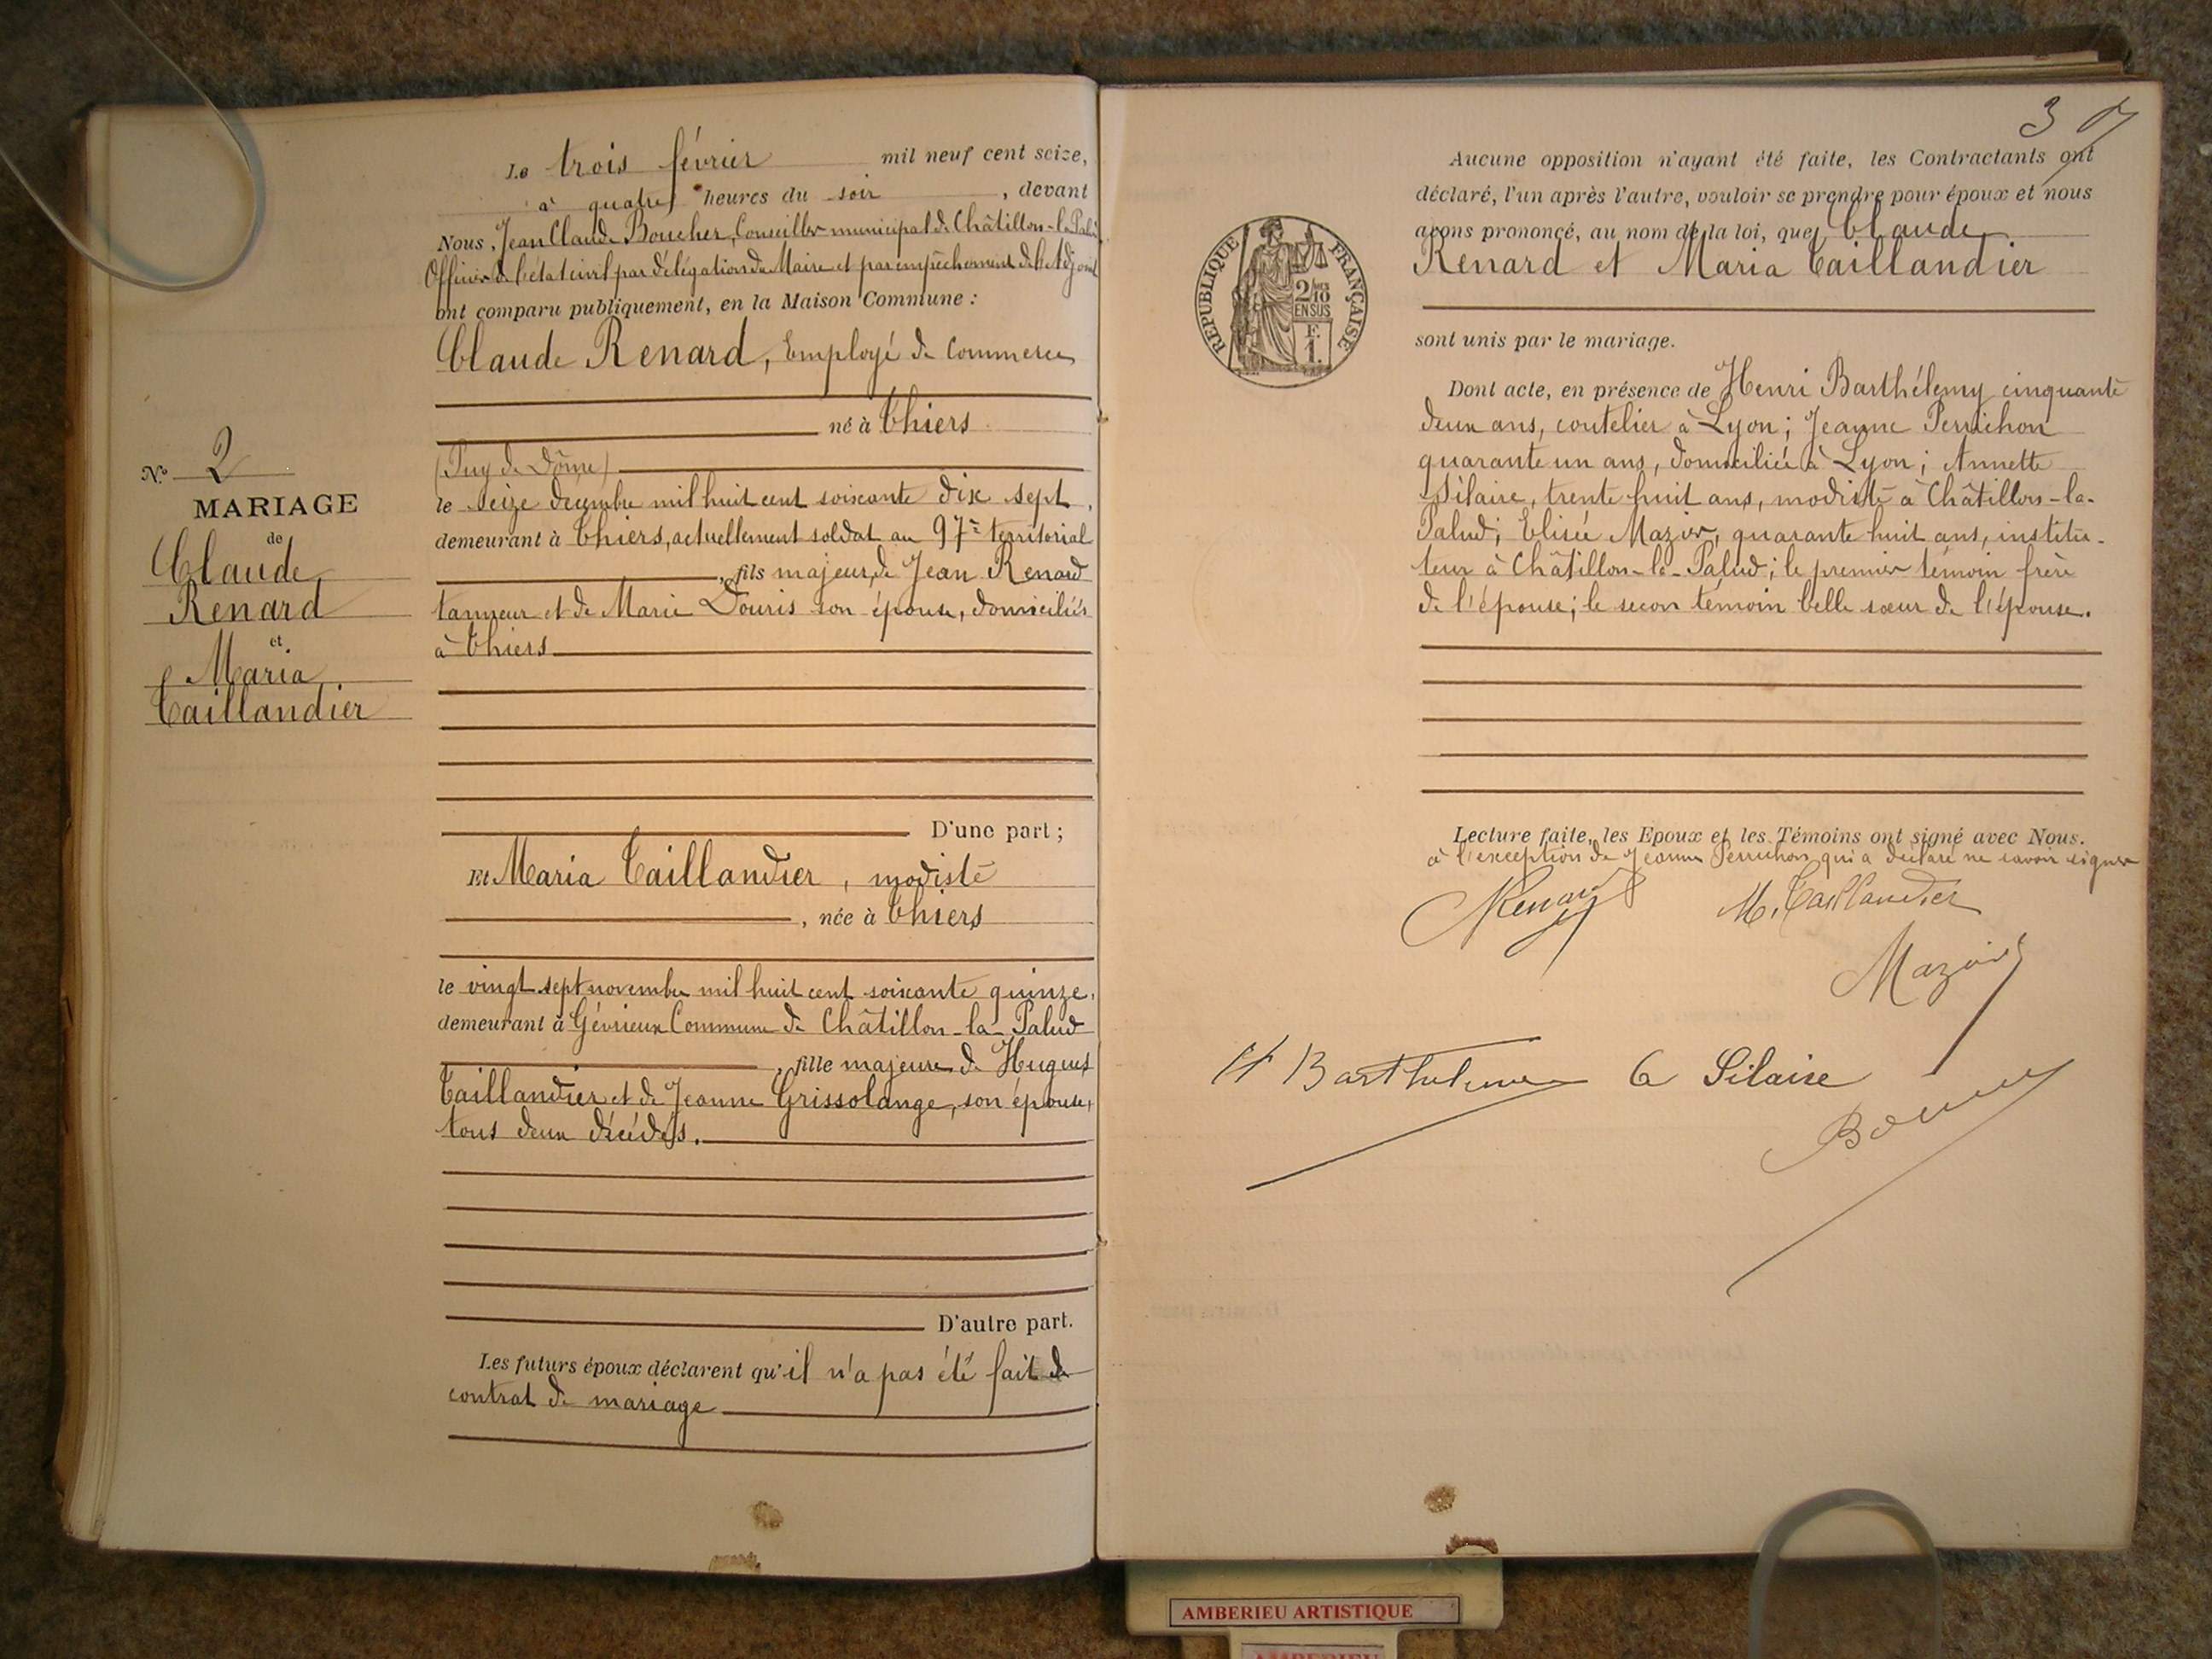 Le trois février mil neuf cent seize,
à quatre heures du soir, devant
Nous, Jean Claude Boucher, Conseiller municipal de Châtillon-la-Palud
Officier de l'état civil par délégation du Maire et par empêchement de l'Adjoint
ont comparu publiquement, en la Maison Commune :
Claude Renard, Employé de Commerce
né à Thiers
(Puy de Dôme)
le seize décembre mil huit cent soixante dix sept,
demeurant à Thiers, actuellement soldat au 97e territorial
, fils majeur de Jean Renard
tanneur et de Marie Douris son épouse, domiciliés
à Thiers
D'une part ;
Et Maria Taillandier, modiste
, née à Thiers
le vingt sept novembre mil huit cent soixante quinze,
demeurant à Gévrieux Commune de Châtillon-la-Palud
, fille majeure de Hugues
Taillandier et de Jeanne Grissolange, son épouse,
tous deux décédés.
D'autre part.
Les futurs époux déclarent qu'il n'a pas été fait de
contrat de mariage
No 2
MARIAGE
de
Claude
Renard
et
Maria
Taillandier
3
Aucune opposition n'ayant été faite, les Contractants ont
déclaré, l'un après l'autre, vouloir se prendre pour époux et nous
avons prononcé, au nom de la loi, que Claude
Renard et Maria Taillandier
sont unis par le mariage.
Dont acte, en présence de Henri Barthélemy cinquante
deux ans, coutelier à Lyon ; Jeanne Perrichon
quarante un ans, domiciliée à Lyon ; Annette
Silaire, trente huit ans, modiste à Châtillon-la-
Palud ; Elisée Mazier, quarante huit ans, institu-
teur à Châtillon-la-Palud ; le premier témoin frère
de l'épouse ; le secon témoin belle sœur de l'épouse.
Lecture faite, les Epoux et les Témoins ont signé avec Nous.
à l'exception de Jeanne Perrichon qui a déclaré ne savoir signer
Renard
M. Taillandier
Mazier
H Barthelemy
A Silaire
RÉPUBLIQUE FRANÇAISE
2/10
EN SUS
F.
1.
AMBERIEU ARTISTIQUE
AMBERIEU